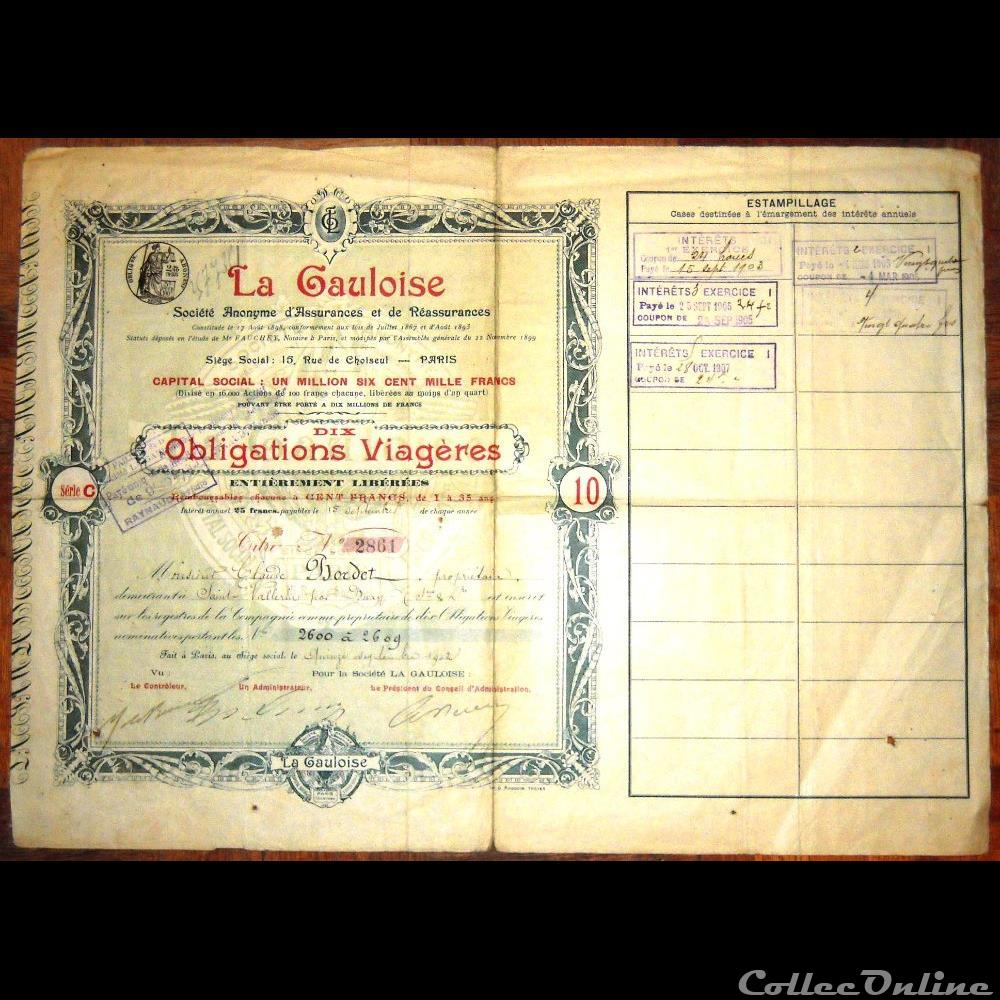 La Gauloise
Société Anonyme d'Assurances et de Réassurances
Constituée le 17 Août 1898, conformément aux lois de Juillet 1867 et d'Août 1893
Statuts déposés en l'étude de Me FAUCHEY, Notaire à Paris, et modifiés par l'Assemblée générale du 22 Novembre 1899
Siège Social : 15, Rue de Choiseul — PARIS
CAPITAL SOCIAL : UN MILLION SIX CENT MILLE FRANCS
(Divisé en 16.000 Actions de 100 francs chacune, libérées au moins d'un quart)
POUVANT ÊTRE PORTÉ A DIX MILLIONS DE FRANCS
DIX
Obligations Viagères
ENTIÈREMENT LIBÉRÉES
Série C
10
Remboursables chacune à CENT FRANCS, de 1 à 35 ans
Intérêt annuel 25 francs, payables le 15 septembre de chaque année
Titre No 2861
Monsieur Claude Bordet, propriétaire,
demeurant à Saint est inscrit
sur les registres de la Compagnie comme propriétaire de dix Obligations Viagères
nominatives portant les Nos 2600 à 2609
Fait à Paris, au Siège social, le quinze septembre 1902
Vu : Pour la Société LA GAULOISE :
Le Contrôleur, Un Administrateur, Le Président du Conseil d'Administration,
La Gauloise
PARIS
ESTAMPILLAGE
Cases destinées à l'émargement des intérêts annuels
INTÉRÊTS
1er EXERCICE
Coupon de 24 francs
Payé le 15 sept 1903
INTÉRÊTS 2 EXERCICE
Payé le
MAR
INTÉRÊTS 3 EXERCICE
Payé le 25 SEPT 1905
COUPON DE 24 fr
SEP 1905
4
Vingt quatre frs
INTÉRÊTS EXERCICE
Payé le 28 OCT. 1907
COUPON DE
CollecOnline